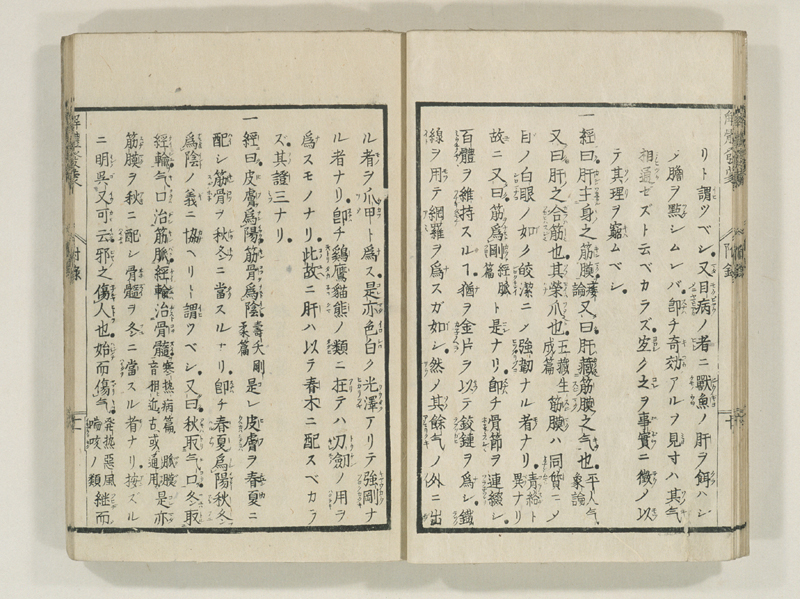 リト謂ツベシ又目病ノ者ニ獸魚ノ肝ヲ餌ハシ
メ膽ヲ點シムレバ卽チ奇効アルヲ見寸ハ其气
相通ゼズト云ベカラズ空ク之ヲ事實ニ徵ノ以
テ其理ヲ竆ムベシ
一 經曰肝主身之筋膜痿論又曰肝藏筋膜之气也平人气象論
又曰肝之合筋也其榮爪也五藏生成篇筋膜ハ同質ニノ
目ノ白眼ノ如ク皎潔ニノ強韌ナル者ナリ靑絡ト異ナリ
故ニ又曰筋爲剛經脉篇ト是ナリ卽チ骨節ヲ連綴シ
百體ヲ維持スルヿ猶ヲ金片ヲ以テ鉸鏈ヲ爲シ鐵
線ヲ用テ網羅ヲ爲スガ如シ然ノ其餘气ノ外ニ出
ル者ヲ爪甲ト爲ス是亦色白ク光澤アリテ強剛ナ
ル者ナリ卽チ鷄鷹貓熊ノ類ニ在テハ刀劒ノ用ヲ
爲スモノナリ此故ニ肝ハ以テ春木ニ配スベカラ
ズ其證三ナリ
一 經曰皮膚爲陽筋骨爲陰壽夭剛柔篇是レ皮膚ヲ春夏ニ
配シ筋骨ヲ秋冬ニ當スルナリ卽チ春夏爲陽秋冬
爲陰ノ義ニ協ヘリト謂ツベシ又曰秋取气口冬取
經輸气口治筋脈經輸治骨髓寒熱病篇 脈膜音相近古或通用是亦
筋膜ヲ秋ニ配シ骨髓ヲ冬ニ當スル者ナリ按ズル
ニ明呉又可云邪之傷人也始而傷气發熱惡風喘咳ノ類継而
附錄
十
解體發蒙
附錄
十一